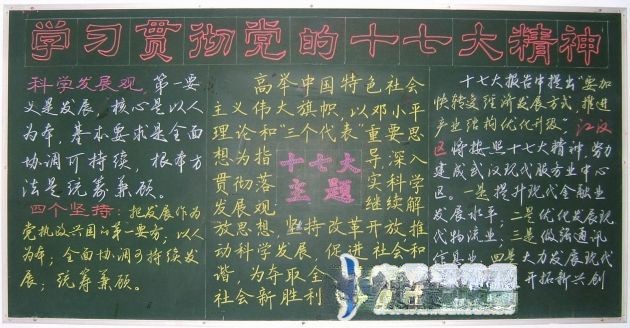 学习贯彻党的十七大精神
科学发展观，第一要
义是发展，核心是以人
为本，基本要求是全面
协调可持续，根本方
法是统筹兼顾。
四个坚持：把发展作为
党执政兴国的第一要务；以人
为本；全面协调可持续发
展；统筹兼顾。
高举中国特色社会
主义伟大旗帜，以邓小平
理论和“三个代表”重要思
想为指导，深入
贯彻落实科学
发展观，继续解
放思想，坚持改革开放，推
动科学发展，促进社会和
谐，为夺取全
社会新胜利
十七大
主题
十七大报告中提出“要加
快转变经济发展方式，推进
产业结构优化升级”江汉
区将按照十七大精神，努力
建成武汉现代服务业中心
区。一是提升现代金融业
发展水平，二是优化发展现
代物流业；三是做强通讯
信息业，四是大力发展现代
开拓新兴创